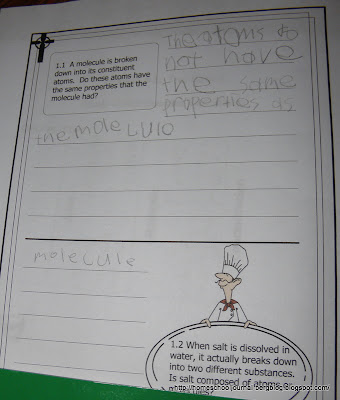 1.1 A molecule is broken
down into its constituent
atoms. Do these atoms have
the same properties that the
molecule had?
The atoms do
not have
the same
properties as
the molecule
molecule
1.2 When salt is dissolved in
water, it actually breaks down
into two different substances.
Is salt composed of atoms or
http://homeschool-journal-bergblog.blogspot.com/